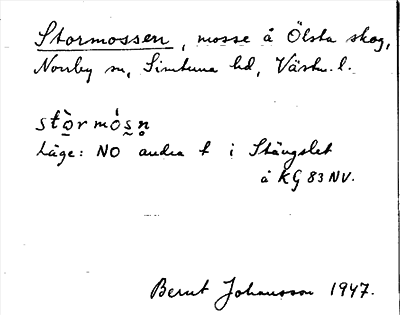 Stormossen, mosse å Ölsta skog,
Norrby sn, Simtuna hd, Västm. l.
stòrmósn̥
Läge: NO andra t i Stängslet
å KG 83 NV.
Bernt Johansson 1947.